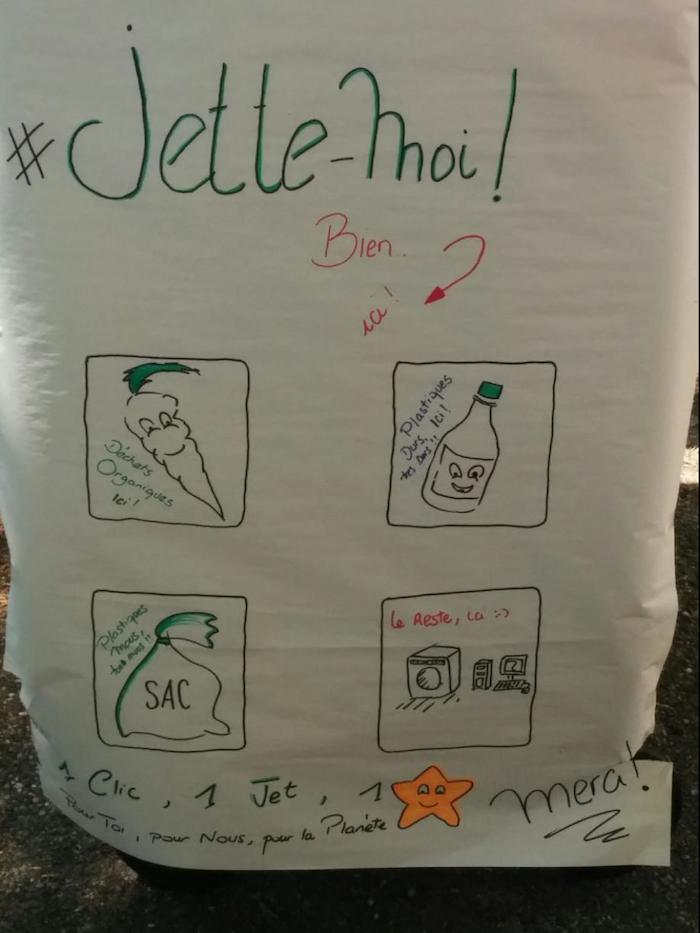 #Jette-Moi!
Bien
ici!
Déchets
Organiques
Ici!
Plastiques
Durs, Ici!
très durs!!
Plastiques
mous,
tout mous!!
SAC
Le Reste, ici :-)
1 Clic, 1 Jet, 1
Merci!
Pour Toi, pour Nous, pour la Planète